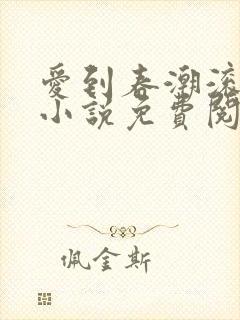 愛到春潮滾
小說免費閱
佩金斯